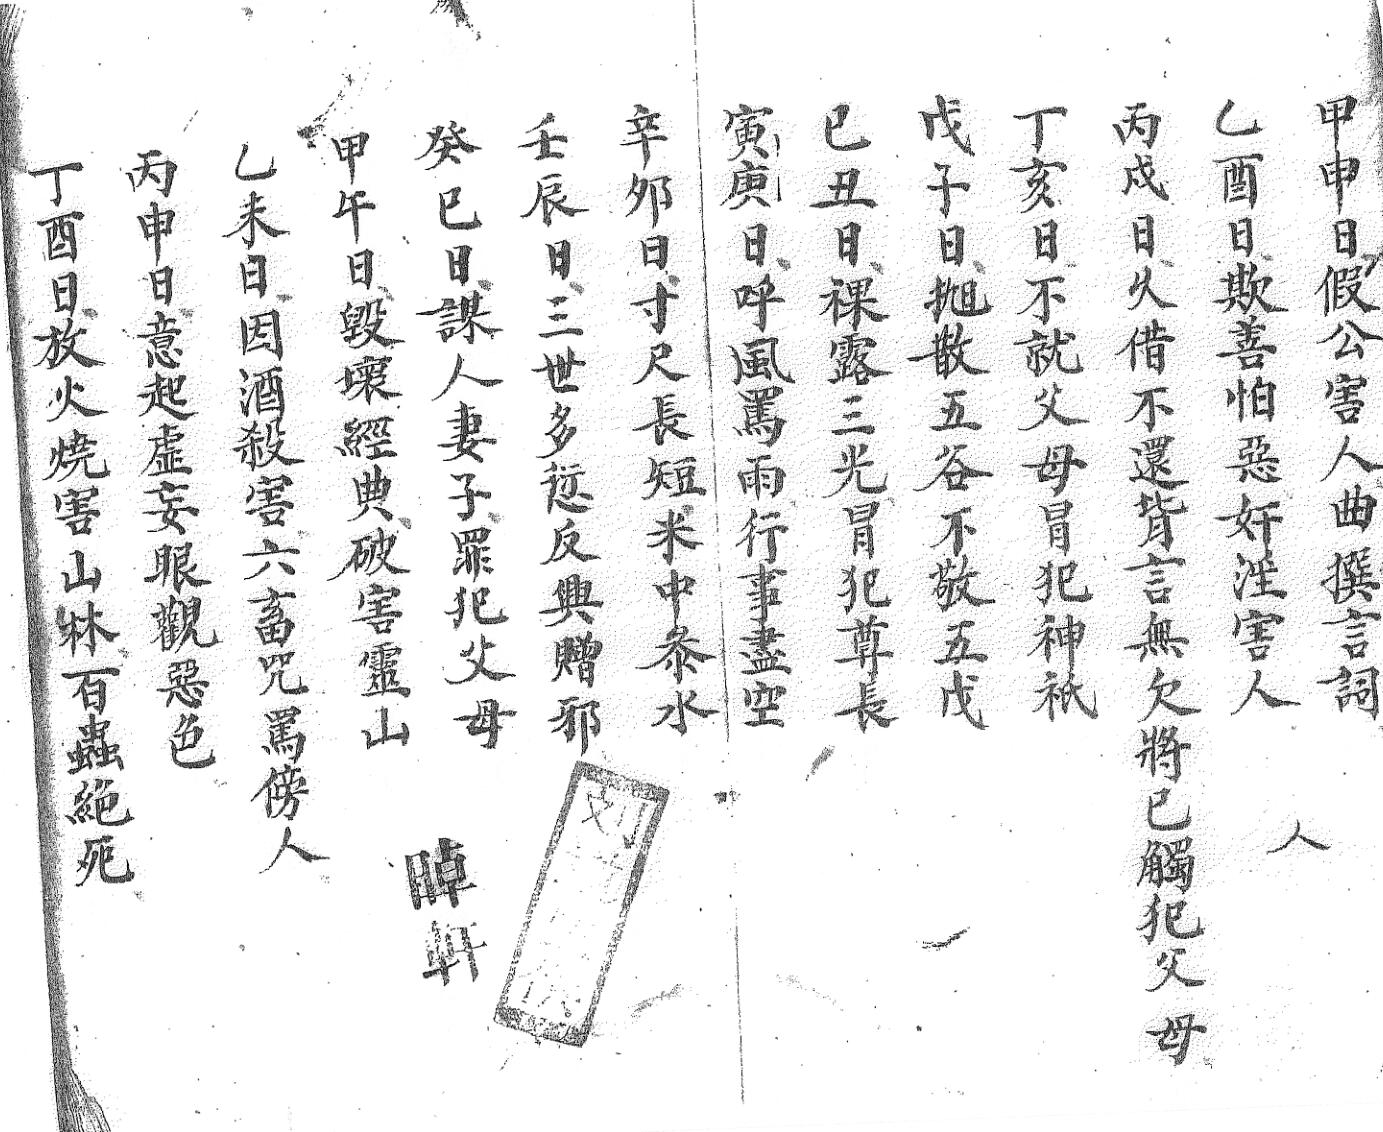 甲申日假公害人曲撰言詞
人
乙酉日欺善怕惡奸淫害人
丙戌日久借不還背言無欠將已觸犯父母
丁亥日不就父母冒犯神祇
戊子日抛散五谷不敬五戊
已丑日裸露三光冒犯尊長
寅庚日呼風罵雨行事盡空
辛夘日寸尺長短米中叅水
壬辰日三世多愆反興贈邪
癸巳日謀人妻子罪犯父母
甲午日毀壞經典破害靈山
乙未日因酒殺害六畜咒罵傍人
丙申日意起虛妄眼觀惡色
丁酉日放火燒害山林百蟲絕死
晫軒